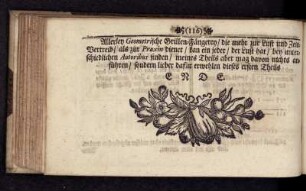 (116)
Allerley Geometrische Grillen-Fängerey / die mehr zur Lust und Zeit-
Vertreib / als zur Praxin dienet / kan ein jeder / der Lust hat / bey unter-
schiedlichen Autoribus finden / meines Theils aber mag davon nichts an-
führen / sondern lieber dafür erwehlen dieses ersten Theils
E N D E.